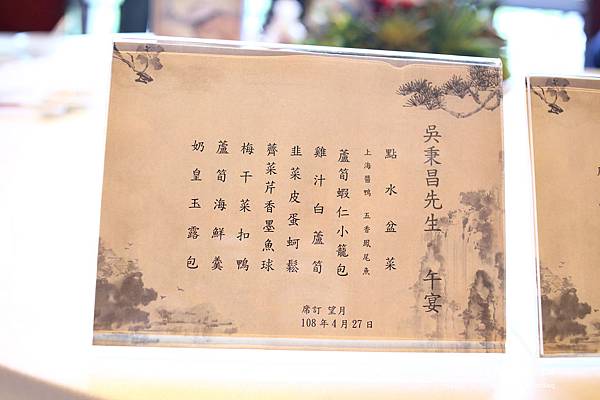 吳秉昌先生 午宴
點水盆菜
上海醬鴨 五香鳳尾魚
蘆筍蝦仁小籠包
雞汁白蘆筍
韭菜皮蛋蚵鬆
薺菜芹香墨魚球
梅干菜扣鴨
蘆筍海鮮羹
奶皇玉露包
席訂 望月
108年4月27日